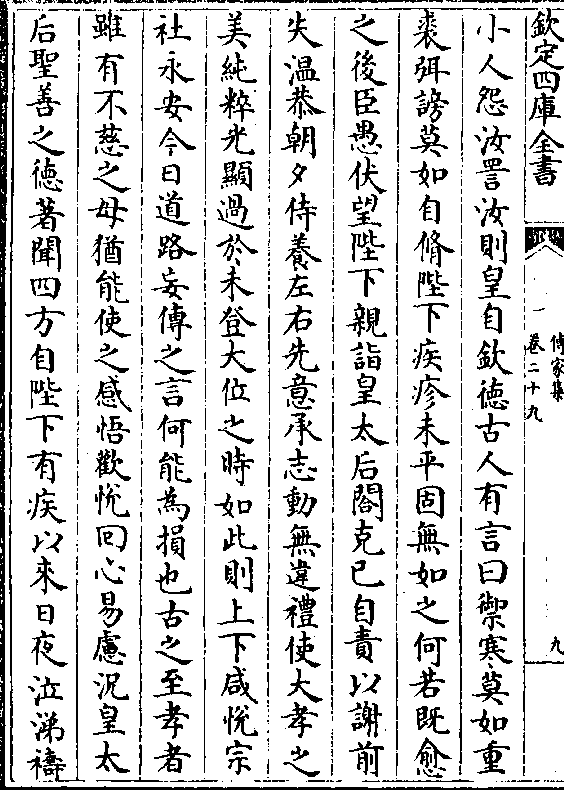 欽定四庫全書
傳家集
卷二十九
九
小人怨汝詈汝則皇自欽德古人有言曰禦寒莫如重
裘弭謗莫如自脩陛下疾疹未平固無如之何若既愈
之後臣愚伏望陛下親詣皇太后閤克已自責以謝前
失温恭朝夕侍養左右先意承志動無違禮使大孝之
美純粹光顯過於未登大位之時如此則上下咸悅宗
社永安今日道路妄傳之言何能為損也古之至孝者
雖有不慈之母猶能使之感悟歡悅回心易慮況皇太
后聖善之德著聞四方自陛下有疾以來日夜泣涕禱